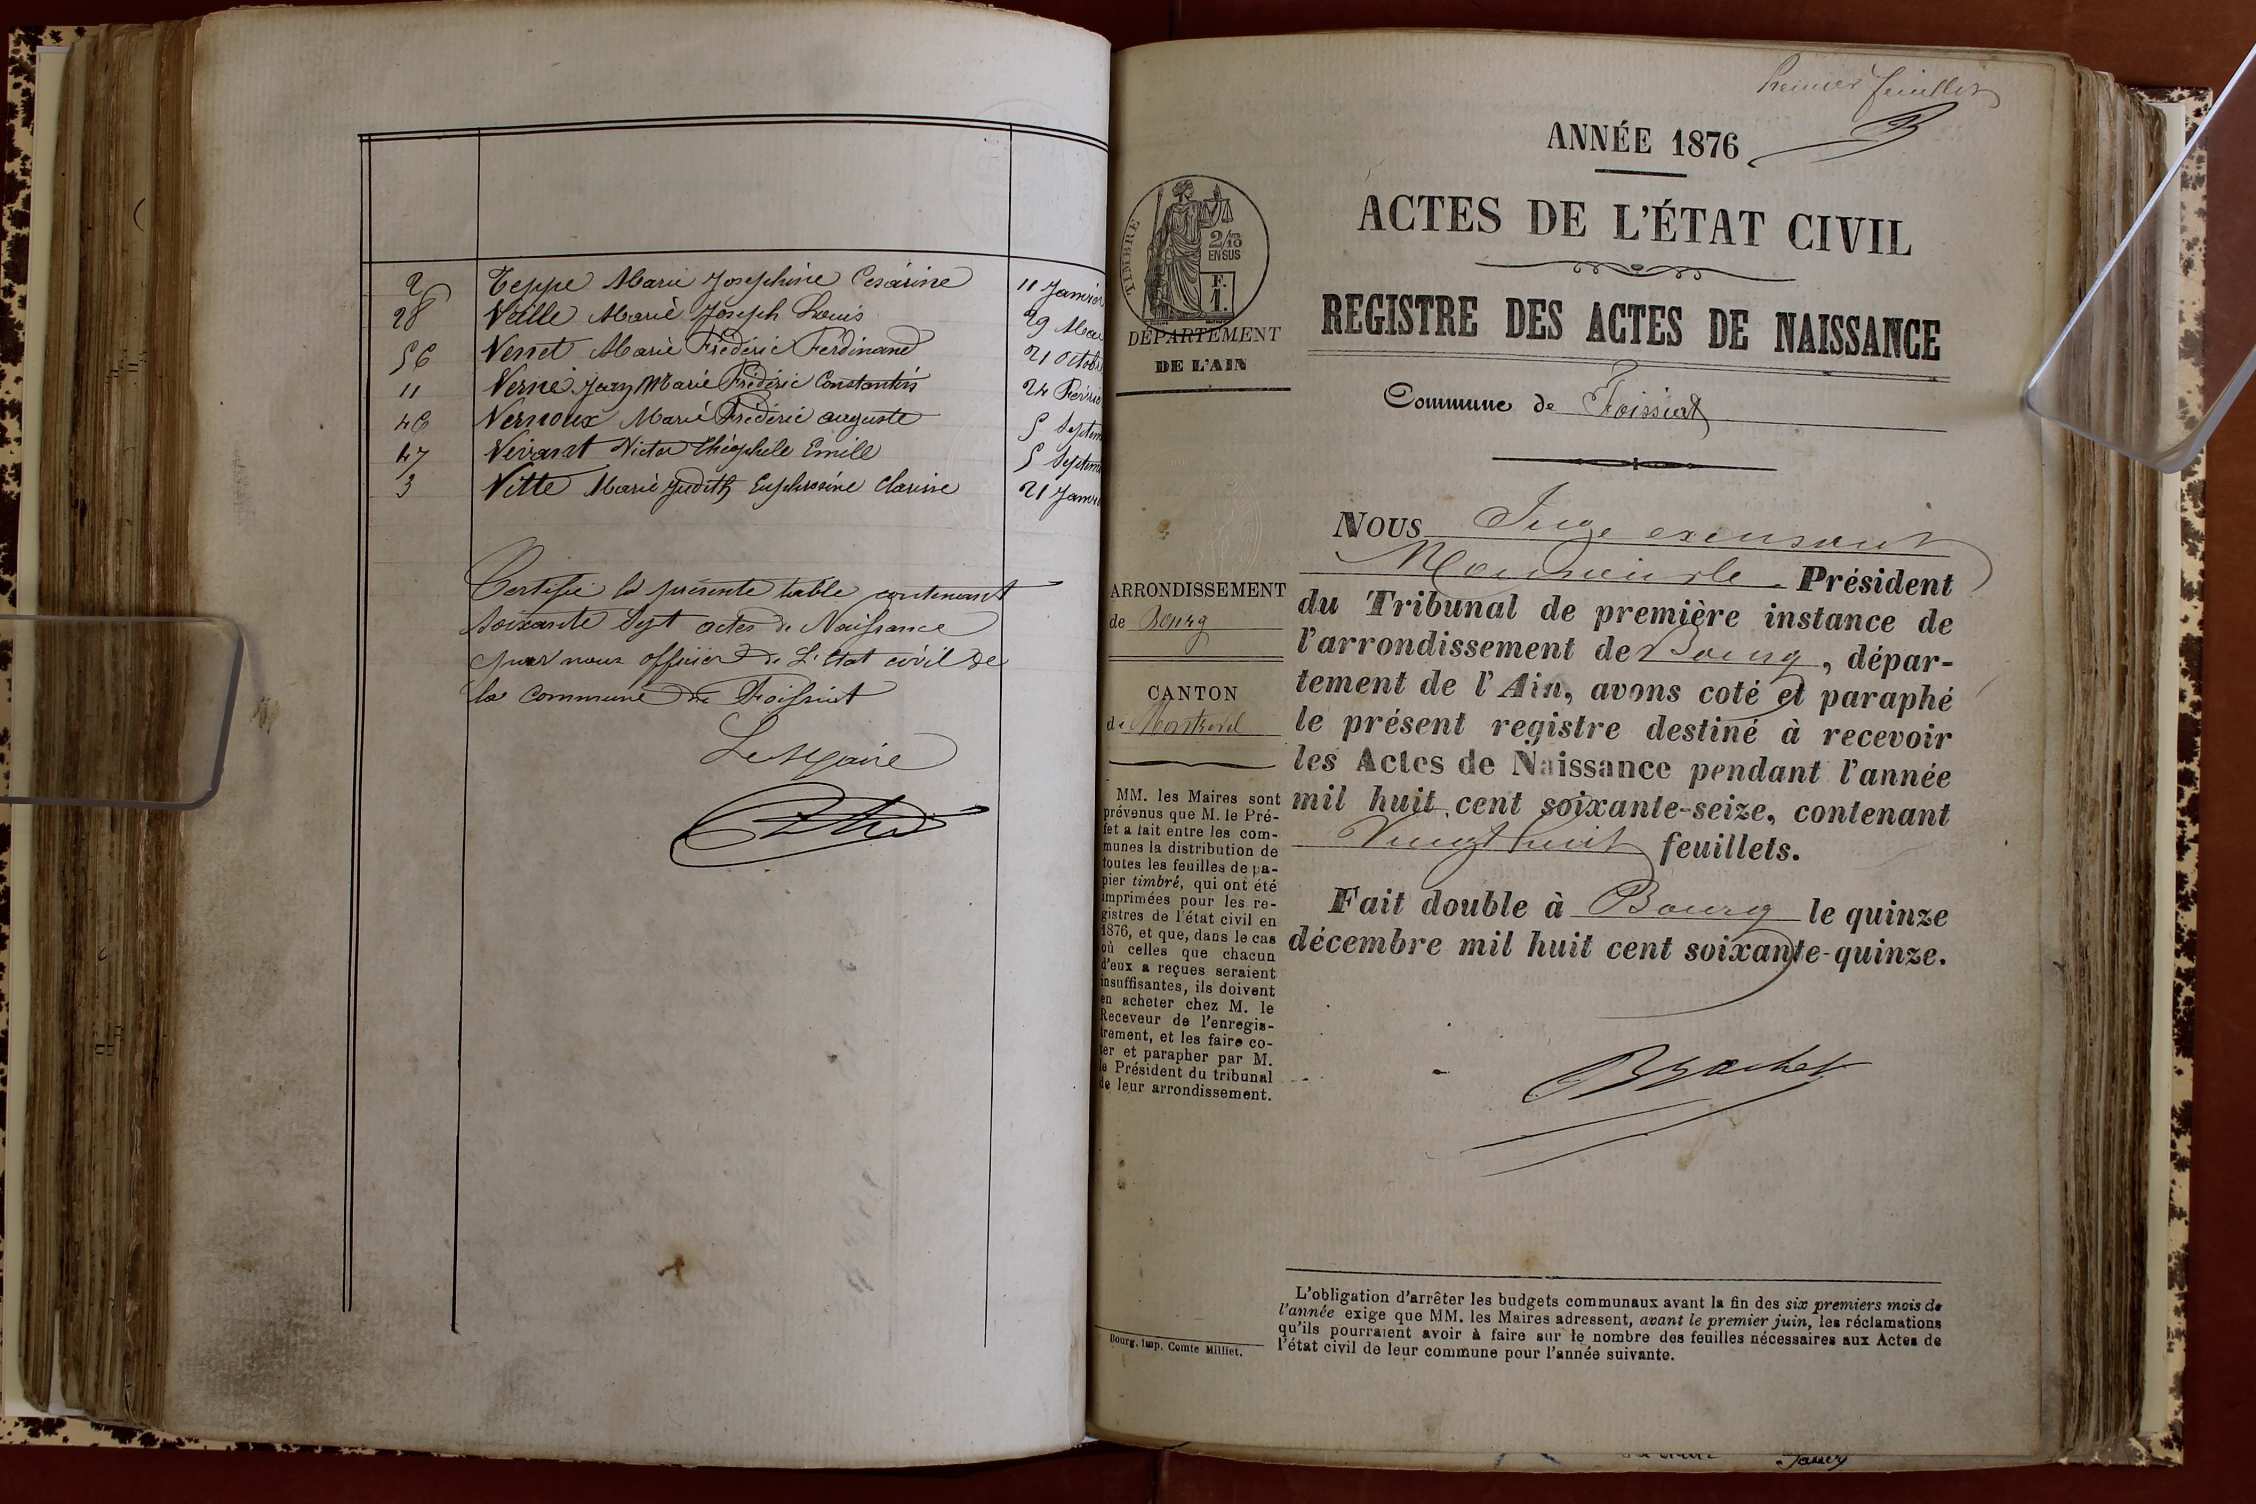 2 Teppe Marie Joséphine Césarine 11 Janvier
28 Veille Marie Joseph Louis 29 Mars
56 Verret Marie Frédéric Ferdinand 21 Octobre
11 Verne Jean Marie Frédéric Constantin 24 Février
46 Vernoux Marie Frédéric Auguste 5 Septem
47 Victor Théophile Emile 5 Septem
3 Vitte Marie Judith Euphrosine Clarisse 21 Janvi
Certifié la présente table contenant
soixante sept actes de Naissance
par nous officier de L'état civil de
la commune de Foissiat
Le Maire
Premier feuillet
ANNÉE 1876
ACTES DE L'ÉTAT CIVIL
REGISTRE DES ACTES DE NAISSANCE
Commune de Foissiat
TIMBRE
2/10
EN SUS
F.
1.
DÉPARTEMENT
DE L'AIN
ARRONDISSEMENT
de Bourg
CANTON
de Montrevel
MM. les Maires sont
prévenus que M. le Pré-
fet a fait entre les com-
munes la distribution de
toutes les feuilles de pa-
pier timbré, qui ont été
imprimées pour les re-
gistres de l'état civil en
1876, et que, dans le cas
où celles que chacun
d'eux a reçues seraient
insuffisantes, ils doivent
en acheter chez M. le
Receveur de l'enregis-
trement, et les faire co-
ter et parapher par M.
le Président du tribunal
de leur arrondissement.
Bourg, Imp. Comte Milliet.
NOUS Juge excusant
Monsieur le Président
du Tribunal de première instance de
l'arrondissement de Bourg, dépar-
tement de l'Ain, avons coté et paraphé
le présent registre destiné à recevoir
les Actes de Naissance pendant l'année
mil huit cent soixante-seize, contenant
Vingt huit feuillets.
Fait double à Bourg le quinze
décembre mil huit cent soixante-quinze.
Brachet
L'obligation d'arrêter les budgets communaux avant la fin des six premiers mois de
l'année exige que MM. les Maires adressent, avant le premier juin, les réclamations
qu'ils pourraient avoir à faire sur le nombre des feuilles nécessaires aux Actes de
l'état civil de leur commune pour l'année suivante.